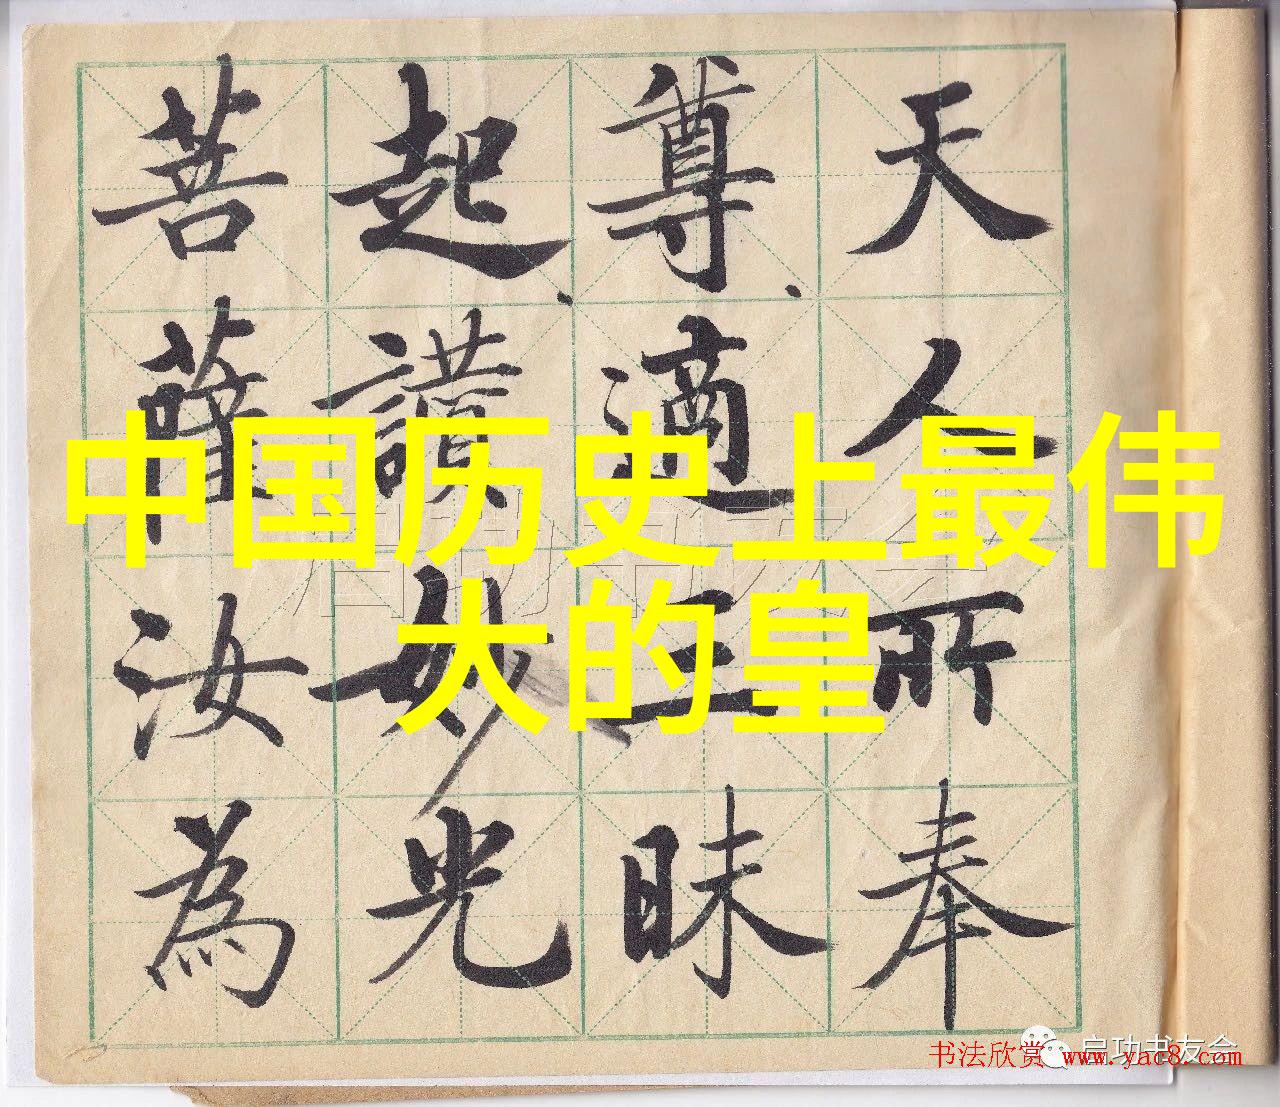 天人所奉
尊適三昧
起讃妙光
菩薩汝為
中国历史上最伟
大的皇
启功书友会
启功书友会
书法欣赏 www.yac8.com